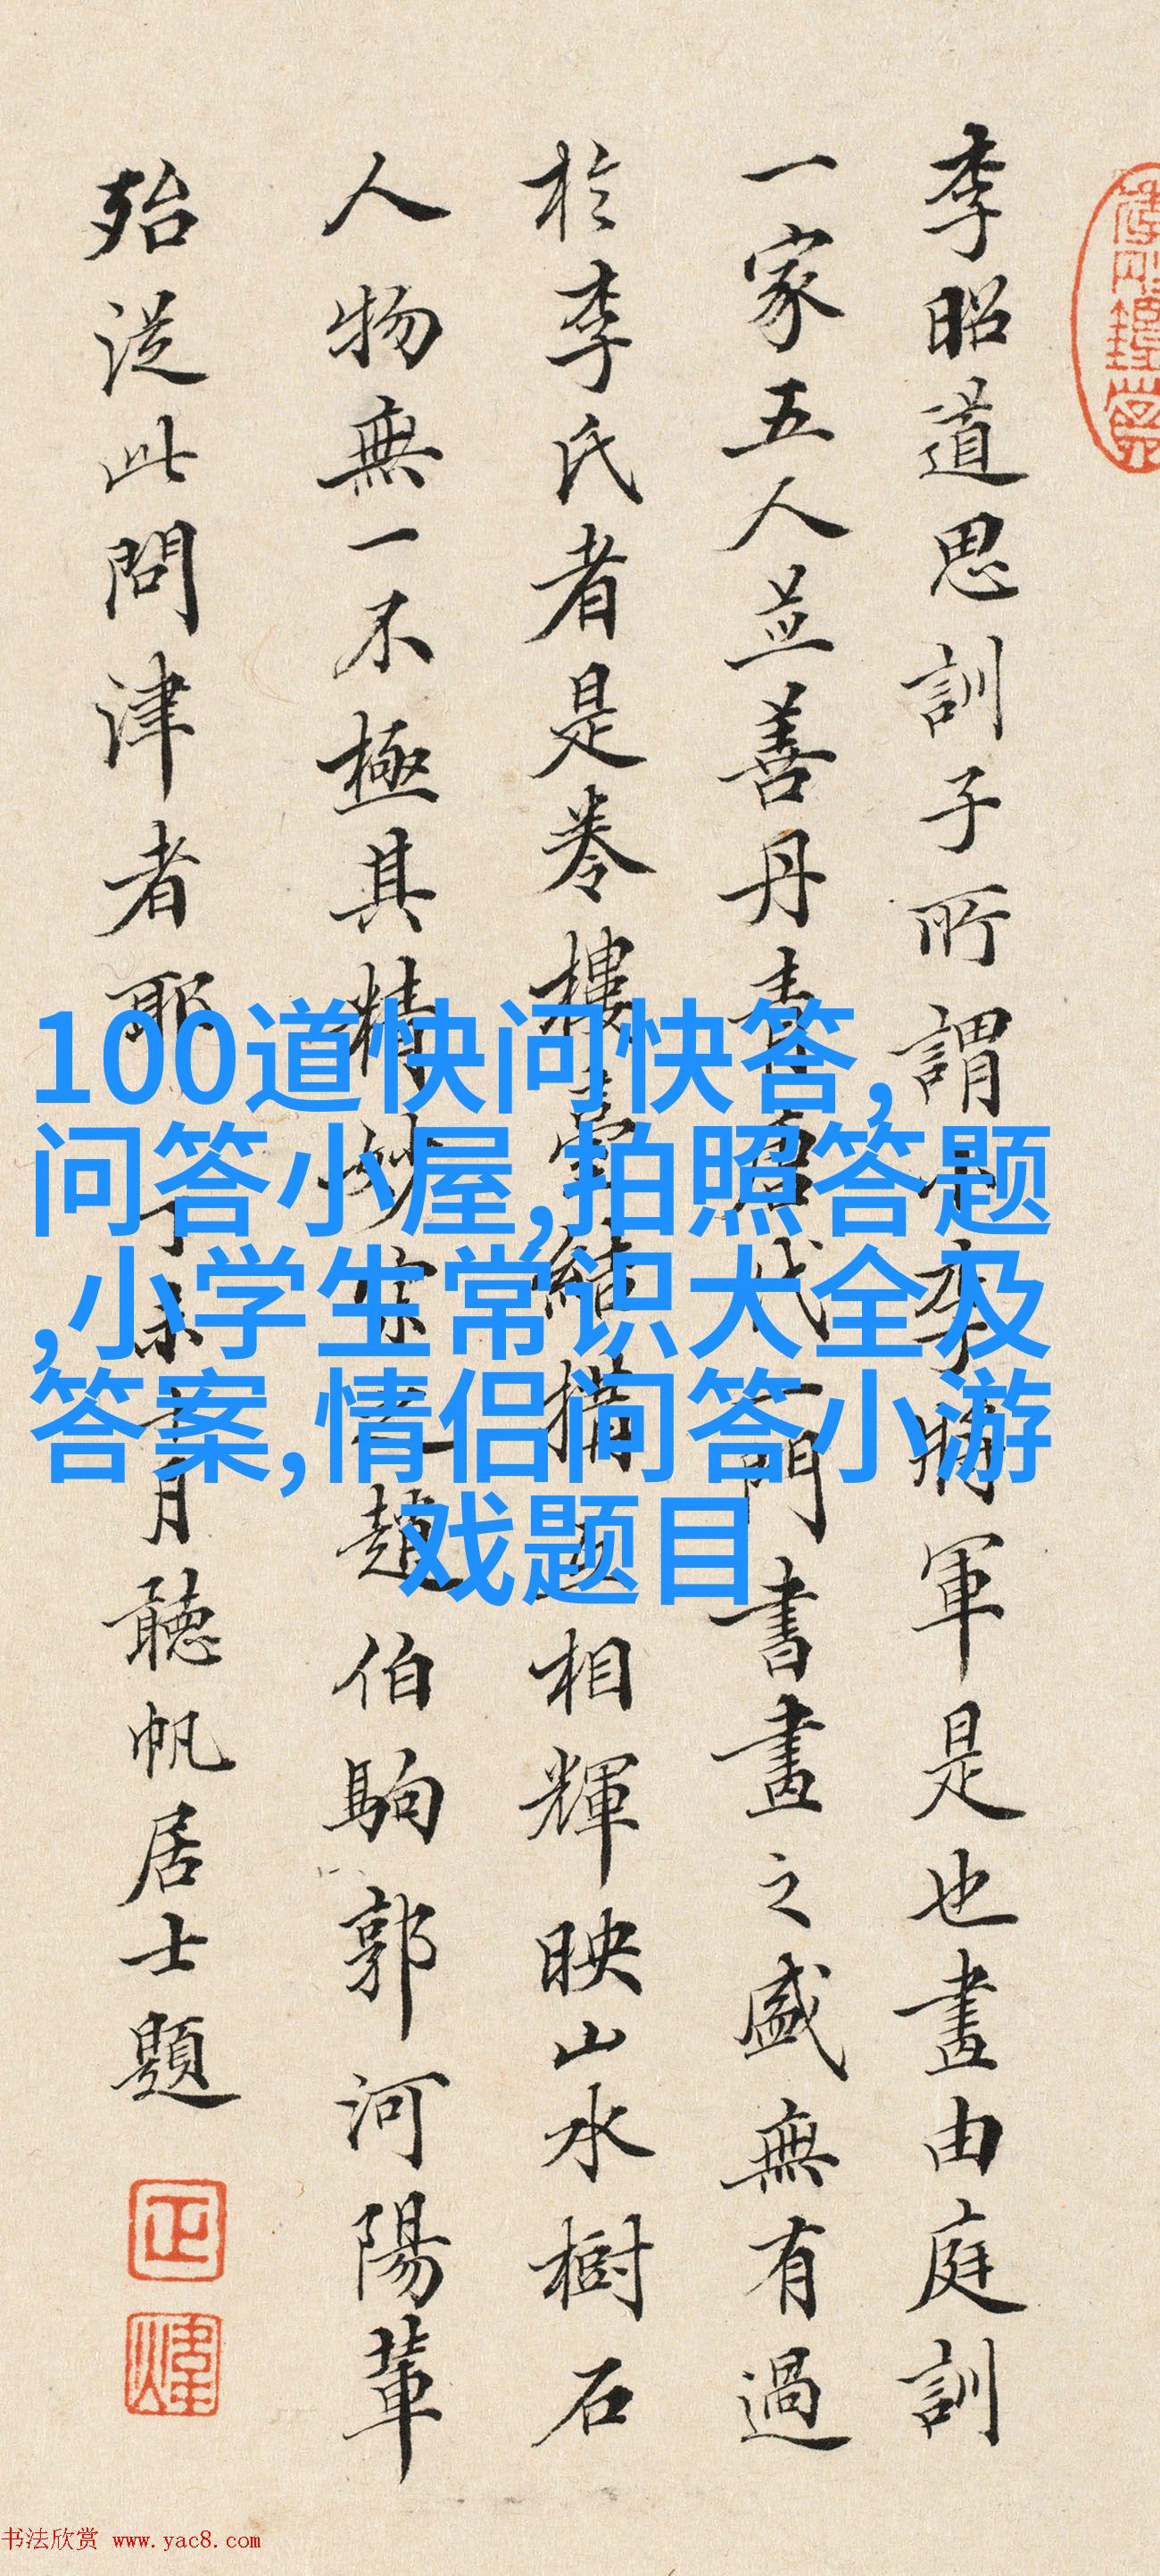 李昭道思訓子所謂小李將軍是也畫由庭訓
一家五人並善丹青唐代一門書畫之盛無有過
於李氏者是卷樓臺結構互相輝映山水樹石
人物無一不極其精妙宋之趙伯駒郭河陽輩
殆從此問津者耶丁未月聽帆居士題
正
煒
100道快问快答,
问答小屋,拍照答题
,小学生常识大全及
答案,情侣问答小游
戏题目
书法欣赏 www.yac8.com